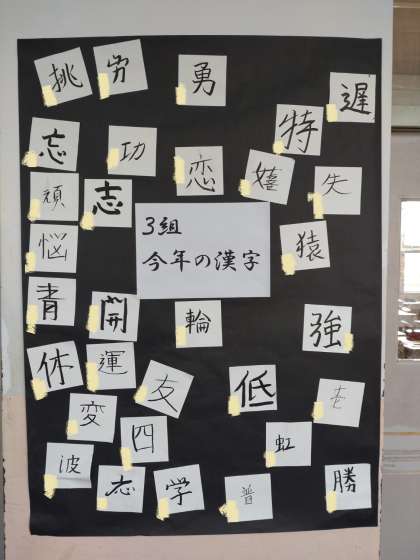 挑 労 勇 遅
忘 功 恋 嬉 特
頑 志 失
3組
今年の漢字
悩 猿
青 開 輪 強
休 運 友 低
変 四 虹
波 志 学 普 勝